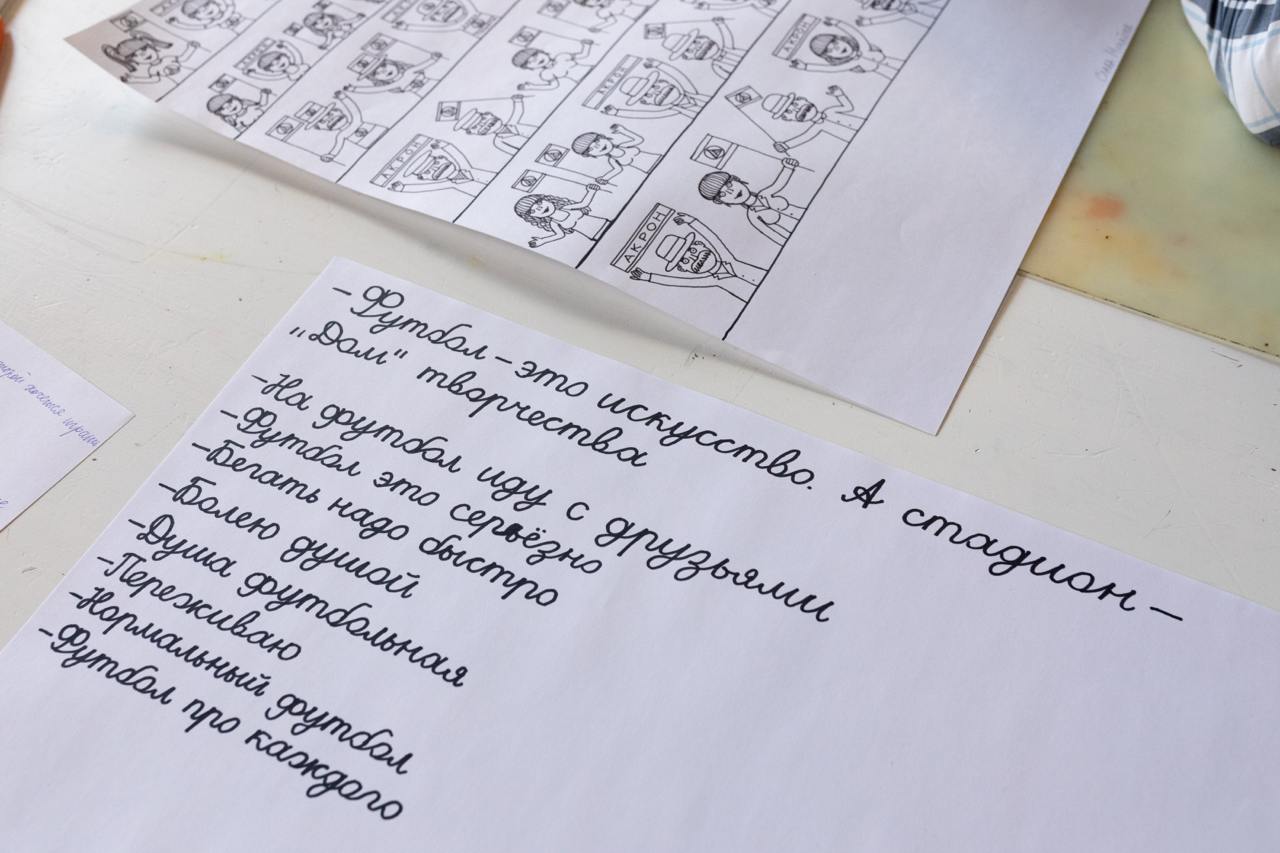 АКРОН
АКРОН
АКРОН
АКРОН
- Футбол - это искусство. А стадион -
"Дом" творчества
- На футбол иду с друзьями
- Футбол это серьёзно
- Бегать надо быстро
- Болею душой
- Душа футбольная
- Переживаю
- Нормальный футбол
- Футбол про каждого